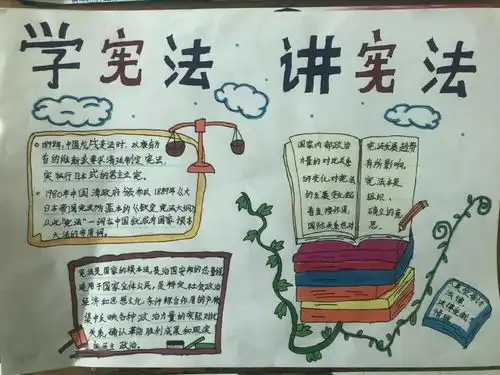 学宪法 讲宪法
1898年,中国戊戌变法时,以康有为
首的维新派要求清廷制定宪法,
实行日本式的君主立宪。
1908年中国清政府颁布以1889年《大
日本帝国宪法》为蓝本的《钦定宪法大纲》
从此"宪法"一词在中国就成为国家根本
大法的专有词
宪法是国家的根本法,是治国安邦的总章程
适用于国家全体公民,是特定社会政治
经济和思想文化条件综合作用的产物
集中反映各种政治力量的实际对比
关系,确认革命胜利成果和现实
民主政治。
国家内部政治
力量的对比关系
的变化对宪法
的发展变化起
着直接作用,
国际关系也对
宪法发展趋势
有所影响。
宪法本是
组织、
确立的意
思。